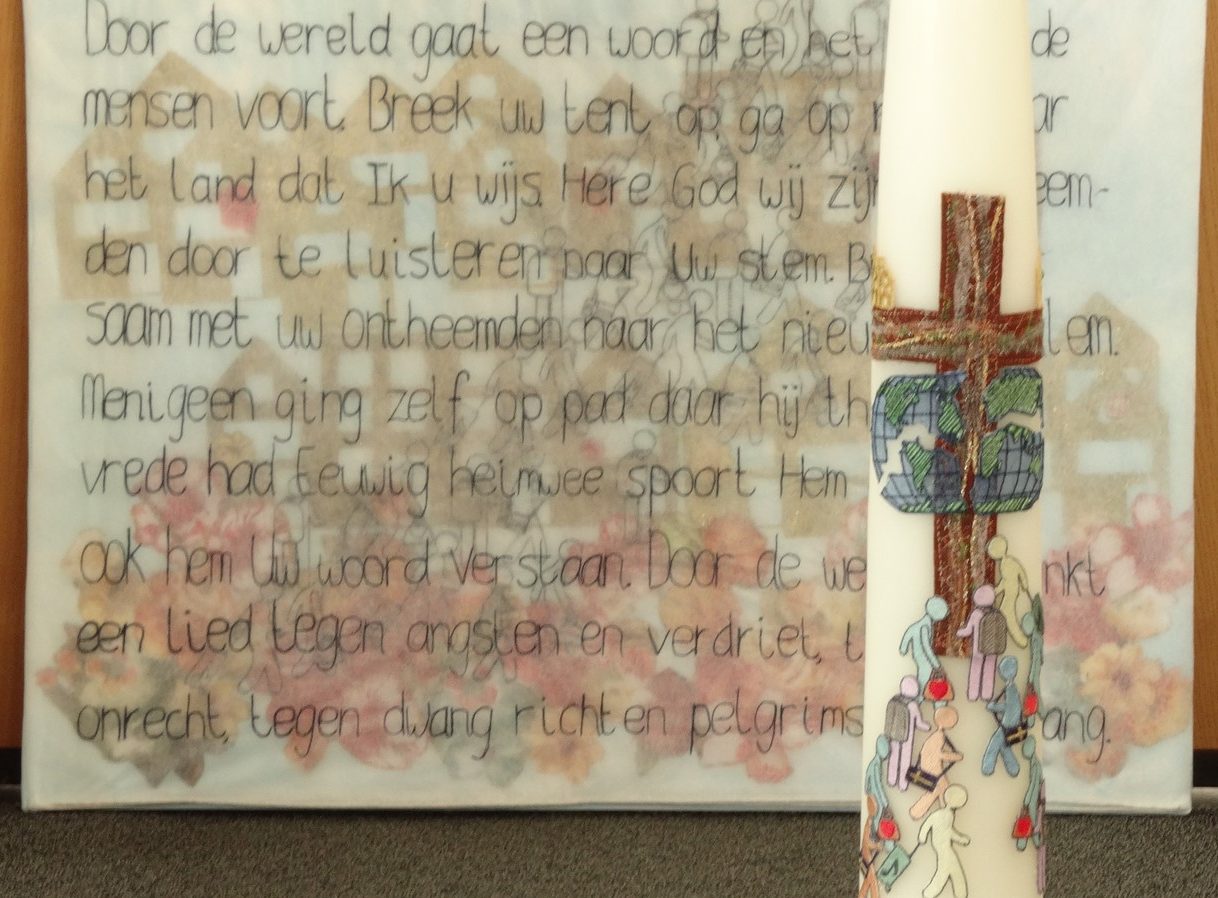 Door de wereld gaat een woord en het de
mensen voort. Breek uw tent op, ga op
het land dat Ik u wijs. Here God wij zijn eem-
den door te luisteren naar Uw stem.
saam met uw ontheemden naar het lem.
Menigeen ging zelf op pad daar hij
vrede had Eeuwig heimwee spoort Hem
ook hem Uw woord verstaan. Door de
een lied tegen angsten en verdriet,
onrecht, tegen dwang richt en pelgrims ang.